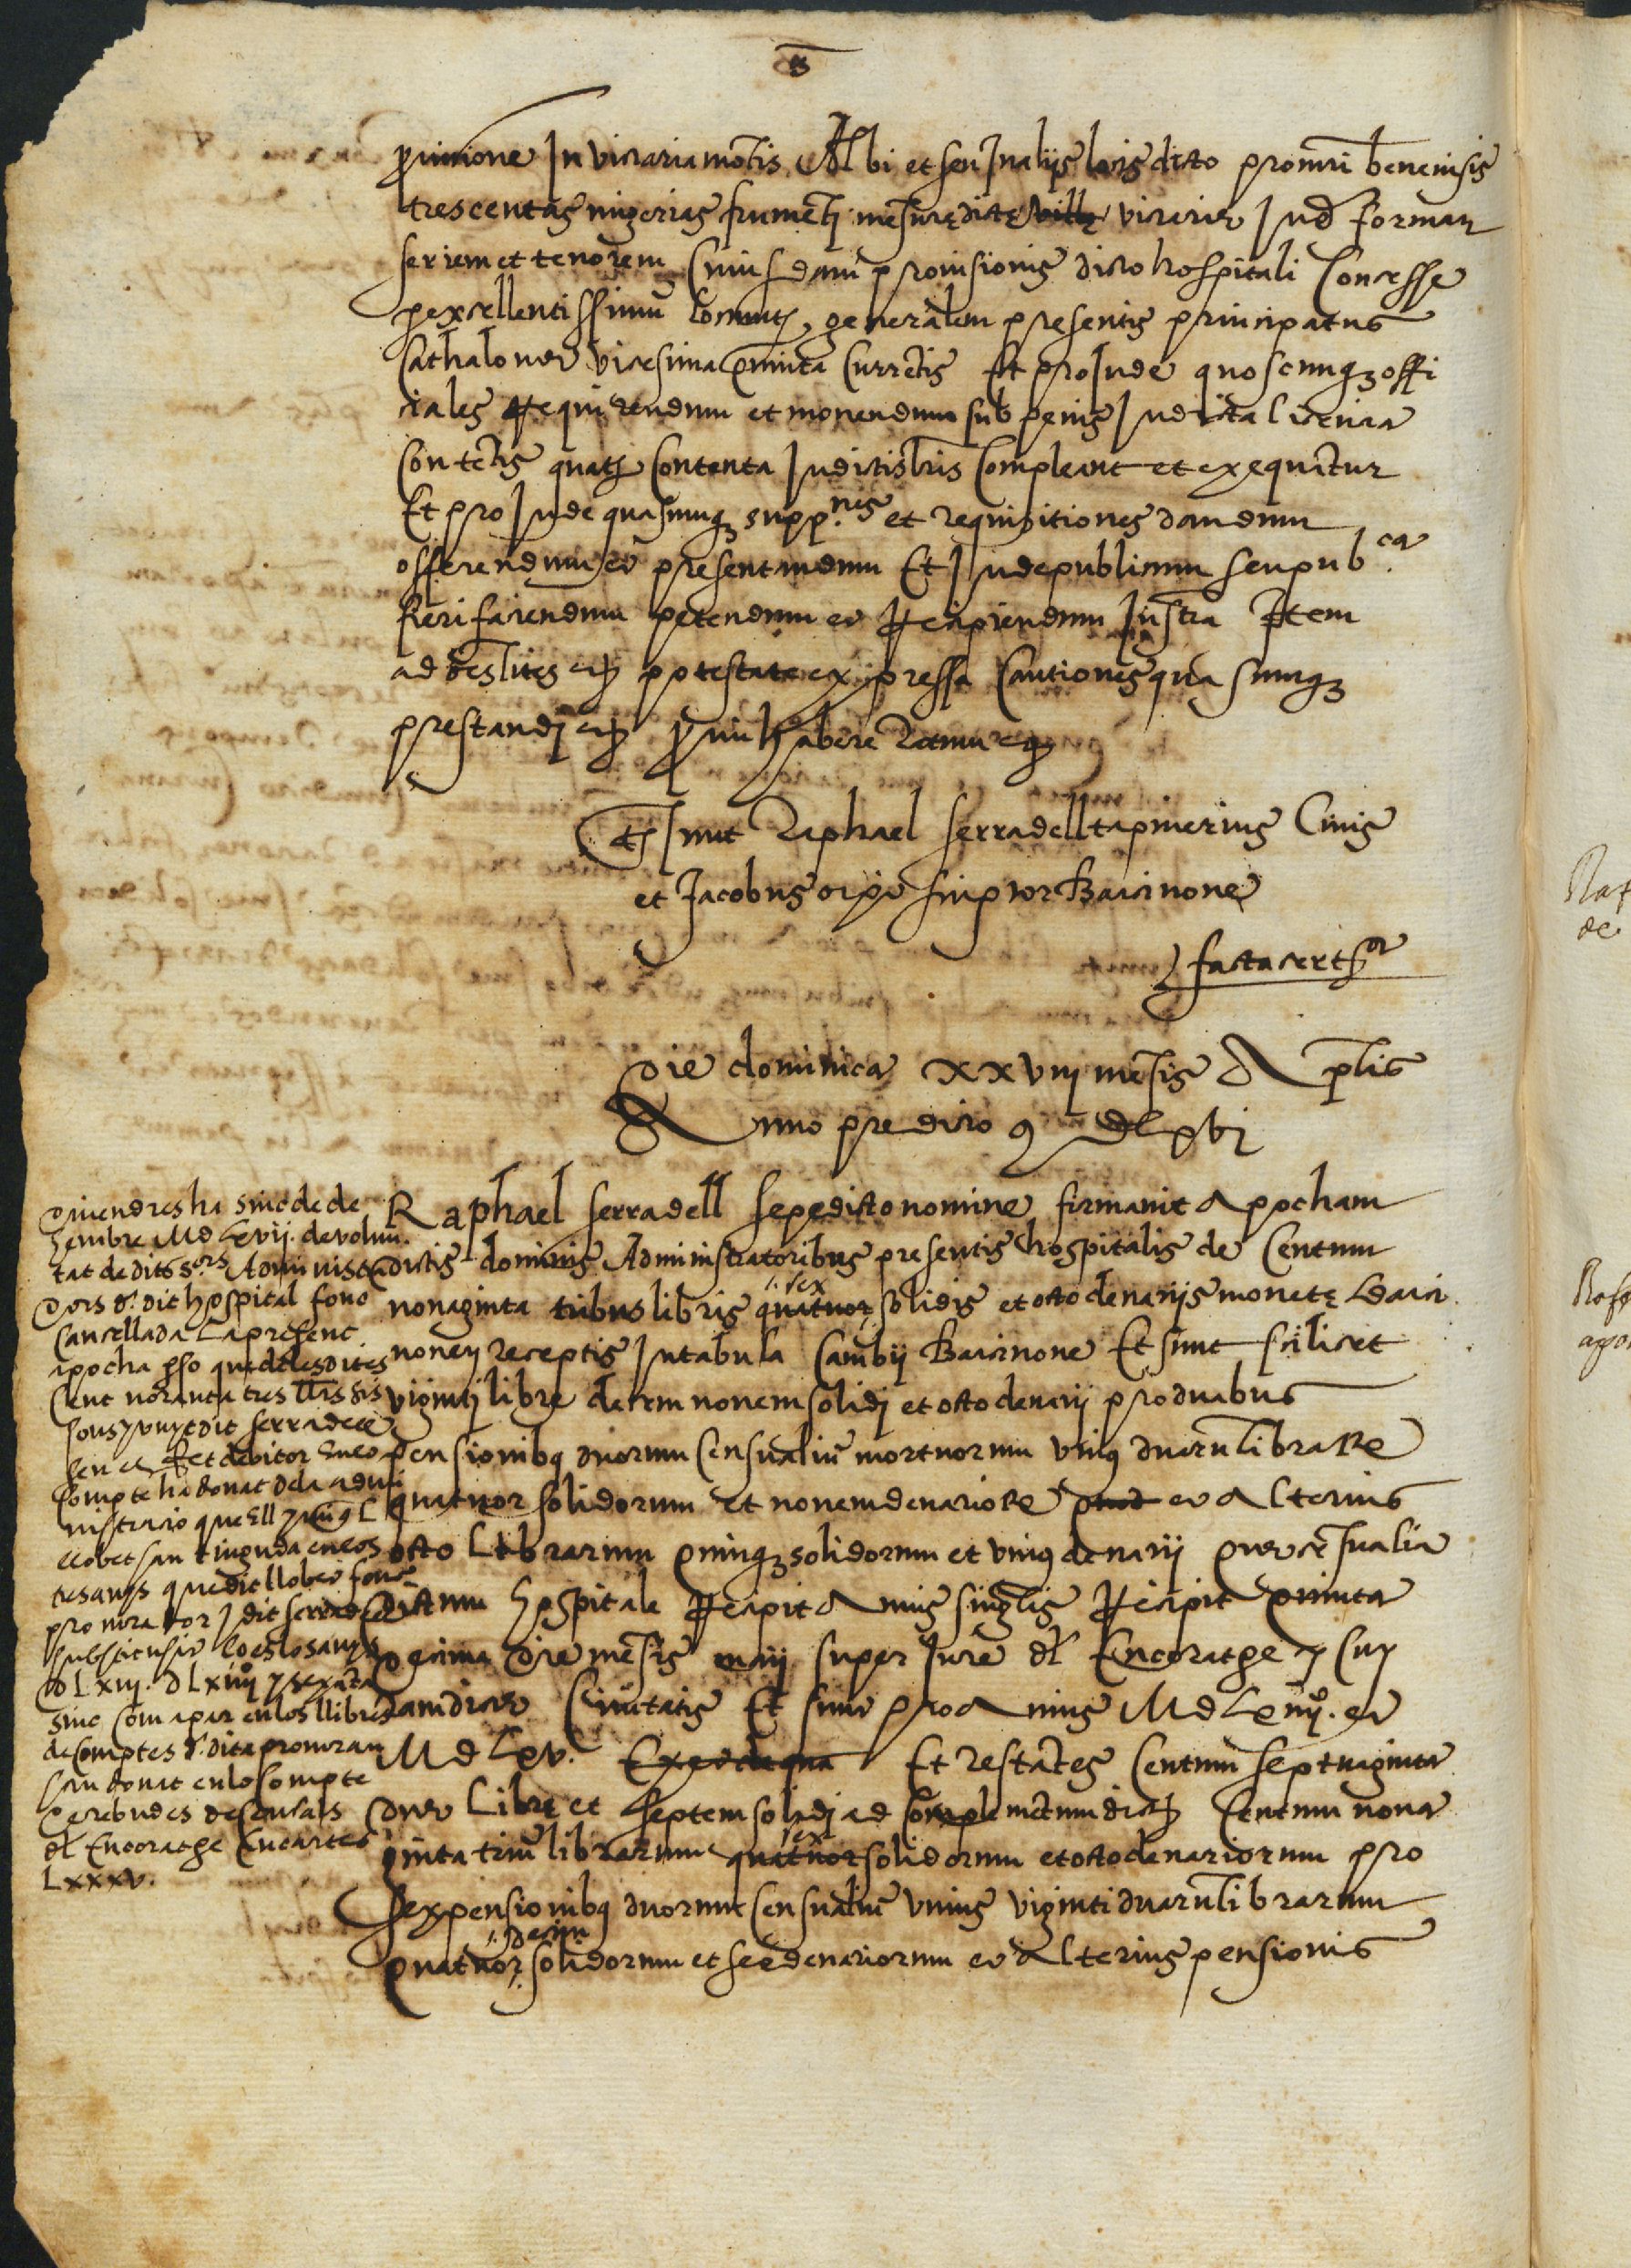 provisione in vicaria montis Albi et seu in aliis locis dicto promri benevisis
trescentas migerias frumenti mesure dicte ville vicarie Jux formam
seriem et tenorem cuiusdam provisionis dicto hospitali concesse
per excellentissimum locumts generalem presentis principatus
Cathalonie vicesima quinta currentis Et pro inde quoscumq offi
ciales Requirendum et monendum sub penis in dicta licencia
contentis quats contenta in dictis lris compleant et exequantur
Et pro inde quasumq supp.nes et requisitiones dandum
offerendum et presentandum Et inde publicum seu pub.ca
fieri faciendum petendum et Recipiendum instra Item
ad oes lites cum potestate expressa cautiones quasumq
prestandi etc. Promi habere ratum etc.
Ts sunt Raphael serradell tapinerius Civis
et Jacobus scriptor Barcinone
facta cert
Die dominica xxviij mesis Aplis
Anno predicto M DLxvi
Raphael serradell sepedicto nomine firmavit Apocham
dictis dominis Administratoribus presentis hospitalis de Centum
sex
nonaginta tribus libris quatuor solidis et octo denariis monete Barci
none receptis in tabula Cambii Barcinone Et sunt scilicet
viginti libre decem novem solidi et octo denarii pro duabus
pensionibq duorum censualium mortuorum unius duarum librare
quatuor solidorum et novem denariore quod et Alterius
octo librarum quinq solidorum et unius denarii que censualia
dictum hospitale Recipit Annis singulis Recipit quinta
decima die mesis maii super iure dl Encoratge y Cuy
ram dicte Civitatis Et sunt pro Annis MdLxiiij. et
MdLxv. Et restantes Centum septuaginta
due libre et septem solidi ad complementum dictar Centum nona
sex
ginta trium librarum quatuor solidorum et octo denariorum pro
sex pensionibq duorum censualium unius viginti duarum librarum
decim
quatuor solidorum et sex denariorum et Alterius pensionis
Divendres ha sinc de de
zembre MdLxvij. de volun
tat de dits s.rs Administra
dors dl dit hospital fonc
Cancellada la present
apocha per so que de les dites
Cent noranta tres ll sis
sous y vuyt dit serradell
sen es fet debitor en lo
compte ha donat de la admi
nistracio que Ell y L
llobet san tinguda en los
tes anys que dit llobet fonc
procurador y dit serradell
substituhit lo es los anys
dLxiij. dLxiiij y sexanta
sinc com apar en los llibres
de comptes d dita procura
san donat en lo compte
de rebudes de censals
dl Encoratge en cartes
Lxxxv.